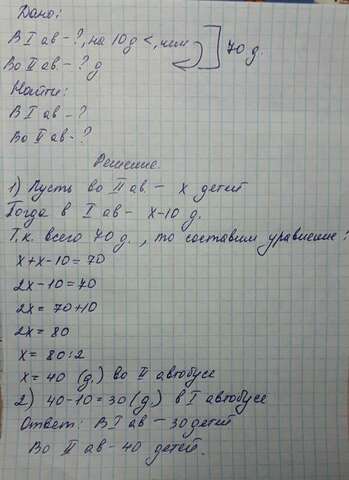 Дано:
В I ав - ?, на 10 д <, чем
Во II ав - ? д
70 д.
Найти:
В I ав - ?
Во II ав - ?
Решение.
1) Пусть во II ав. - x детей
Тогда в I ав - x-10 д.
Т.к. всего 70 д., то составим уравнение:
x+x-10=70
2x-10=70
2x = 70+10
2x = 80
x = 80:2
x = 40 (д.) во II автобусе
2) 40-10=30 (д.) в I автобусе
Ответ: В I ав - 30 детей
Во II ав - 40 детей.